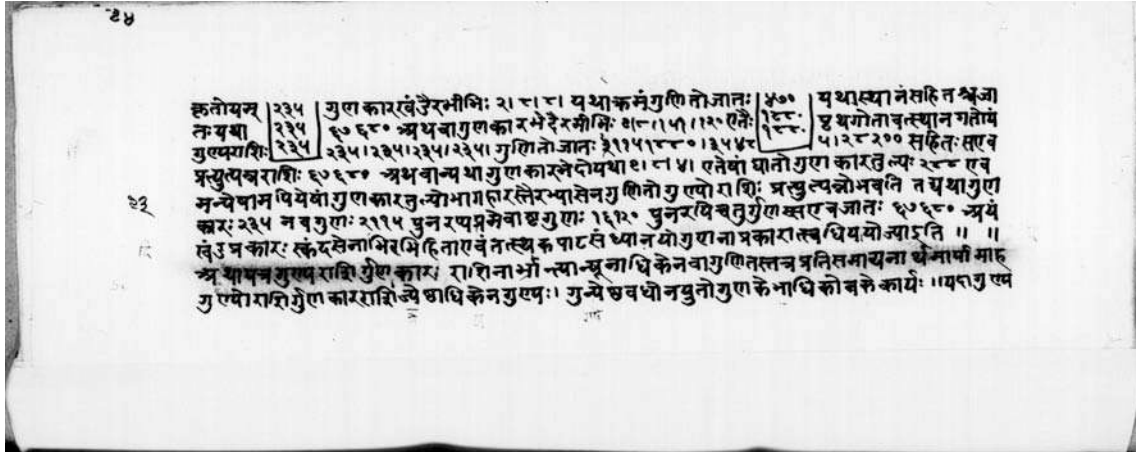 २४
कृतोयम् | २३५ | गुणकारखंडैरमीभिः २।८।८। यथाक्रमं गुणितो जातः | ४७० | यथास्थानं सहितश्च जा
तः यथा | २३५ | ६७६८० अथवा गुणकारभेदैरमीभिः ९।८।१५१।१२० एतैः | १८८० | पृथगोतावत्स्थानगतोयं
गुण्यराशिः २३५ २३५।२३५।२३५।२३५। गुणितो जातः २११५।१८८०।३५४८ ५।२८२०० सहितः सएव
प्रत्युत्पन्नराशिः ६७६८० अथवान्यथा गुणकारभेदोयथा ९।८।४। एतेषां घातो गुणकारतुल्यः २८८ एव
मन्येषामपि येषां गुणकारतुल्योभागहारस्तैरभ्यासेन गुणितो गुण्योराशिः प्रत्युत्पन्नोभवति तद्यथा गुण
२३
कारः २३५ नवगुणः २११५ पुनरप्यमेवाष्टगुणः १६९२० पुनरपि चतुर्गुणस्सएवजातः ६७६८० अयं
खंडप्रकारः स्कंदसेनाभिरभिहिता एवं तत्स्थकपाटसंध्यानयोगुणनाप्रकारास्वधिययोज्याइति ॥ ॥
अथायत्रगुण्यराशिर्गुणकार राशिनार्भान्त्यान्यूनाधिकेनवागुणितस्तत्रप्रतिसमाद्यनार्थमार्यामाह
गुण्योराशिर्गुणकारराशिज्येष्ठाधिकेनगुण्यः। गुन्येष्ठवधोनयुतोगुणकेभाधिकोबकेकार्यः ॥यदागुण्य